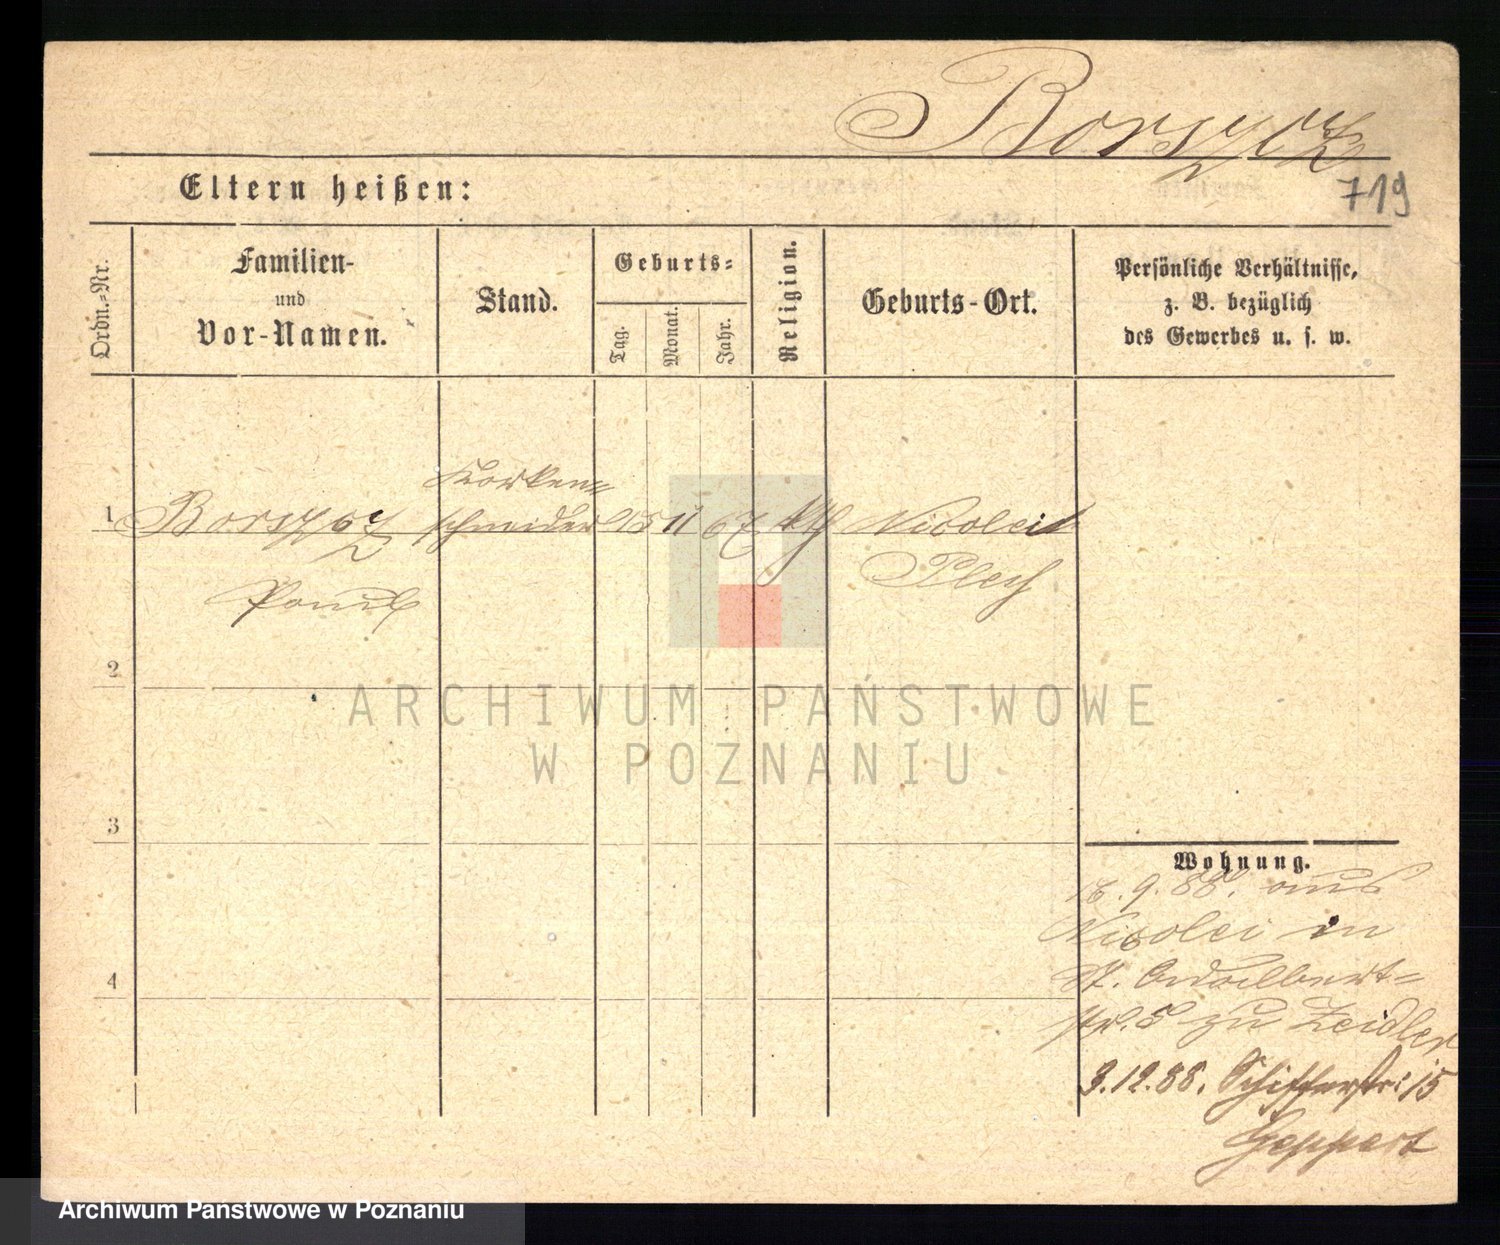 Borszcz
719
Eltern heißen:
Ordn.-Nr.
Familien-
und
Vor-Namen.
Stand.
Geburts-
Tag.
Monat.
Jahr.
Religion.
Geburts-Ort.
Persönliche Verhältnisse,
z. B. bezüglich
des Gewerbes u. s. w.
Korken-
1 schneider 15 11 67 kth Nicolei
Paul Pless
2
3
4
Wohnung.
9. 88. aus
Nicolei in
St. Adalbert-
str. 5 zu Zeidler
3.12.88. Schifferstr. 15
Geppert
ARCHIWUM PAŃSTWOWE
W POZNANIU
Archiwum Państwowe w Poznaniu